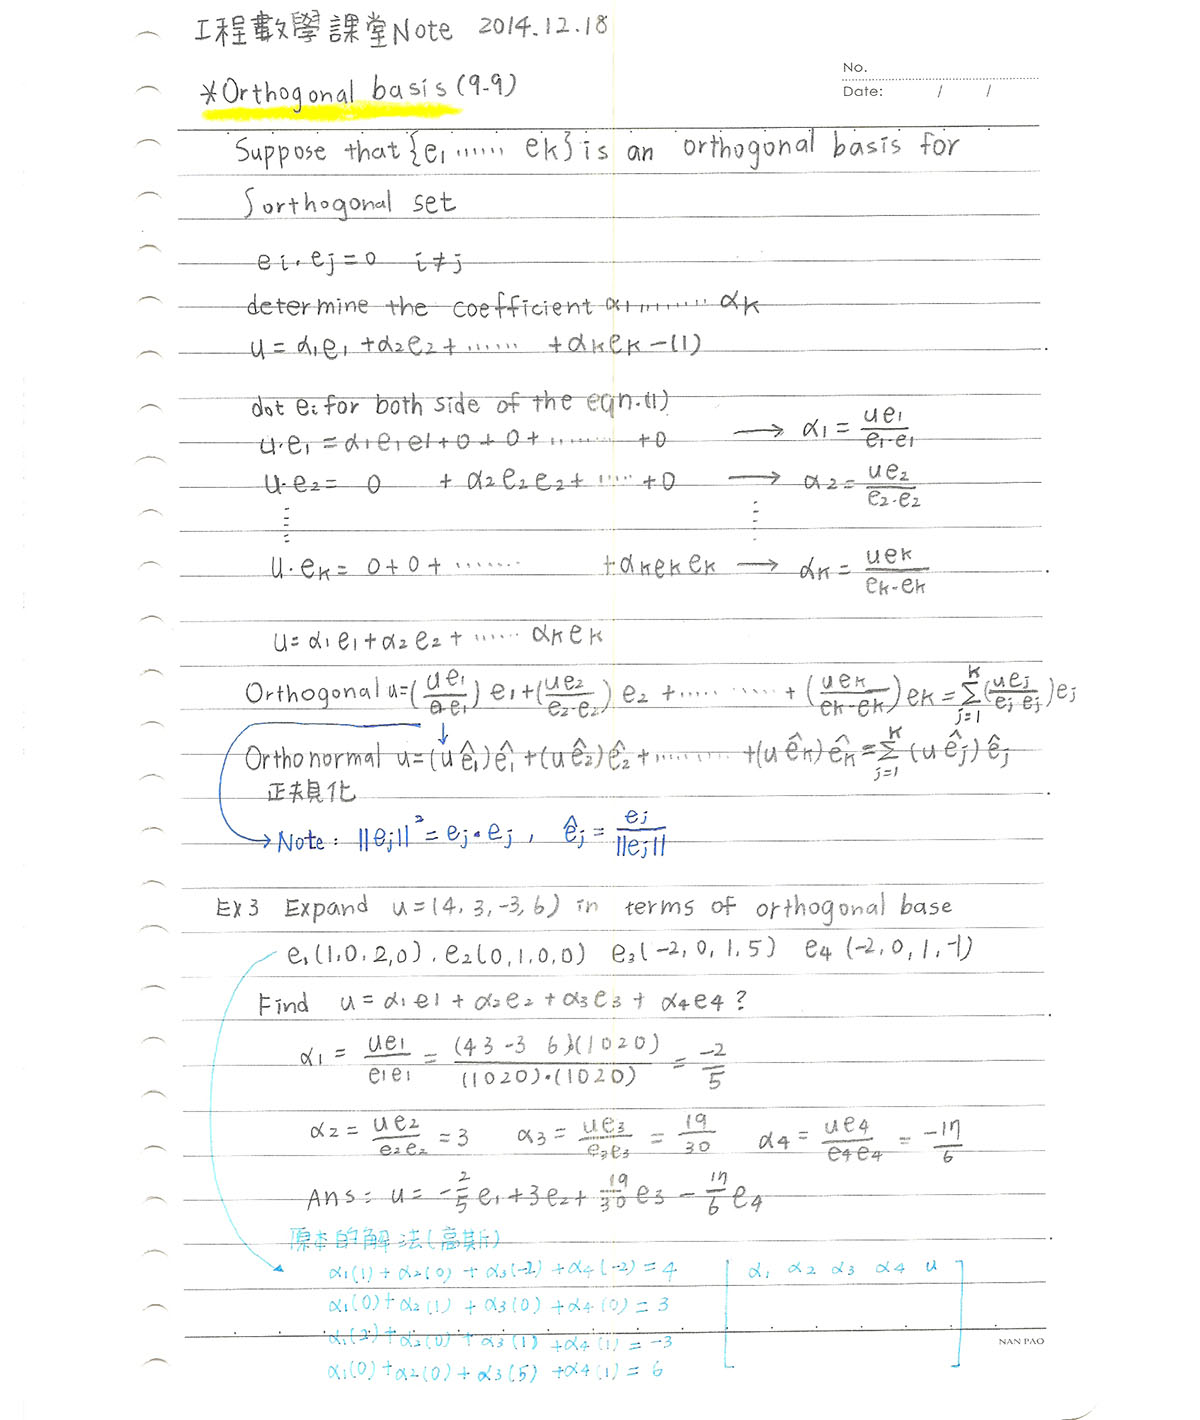 工程數學課堂Note 2014.12.18
No.
Date: / /
*Orthogonal basis (9-9)
Suppose that {e1 ...... ek} is an orthogonal basis for
S orthogonal set
ei·ej=0 i≠j
determine the coefficient α1......... αk
u = α1e1 +α2e2+ ...... +αkek —(1)
dot ei for both side of the eqn.(1)
u·e1 = α1e1e1+0+0+......... +0 → α1 = ue1/e1·e1
u·e2= 0 + α2e2e2+ ..... +0 → α2= ue2/e2·e2
⋮ ⋮
u·ek= 0+0+ ....... +αkekek → αk = uek/ek·ek
u= α1e1+α2e2+ ...... αkek
Orthogonal u=(ue1/e1·e1) e1+(ue2/e2·e2) e2 +..... ..... + (uek/ek·ek) ek = Σ_{j=1}^{k} (uej/ej ej) ej
Orthonormal u=(u ê1)ê1+(uê2)ê2+......... +(u êk)êk=Σ_{j=1}^{k} (u êj) êj
正規化
Note: ||ej||²= ej·ej , êj = ej/||ej||
EX3 Expand u=(4, 3, -3, 6) in terms of orthogonal base
e1(1,0,2,0), e2(0,1,0,0) e3(-2, 0, 1, 5) e4 (-2, 0, 1, -1)
Find u = α1e1 + α2e2 + α3e3 + α4e4 ?
α1 = ue1/e1e1 = (4 3 -3 6)(1020)/(1020)·(1020) = -2/5
α2 = ue2/e2e2 = 3 α3 = ue3/e3e3 = 19/30 α4 = ue4/e4e4 = -17/6
Ans: u = -2/5 e1+3e2+ 19/30 e3 - 17/6 e4
原本的解法(高斯)
α1(1) + α2(0) + α3(-2) +α4(-2) = 4 [ α1 α2 α3 α4 u ]
α1(0)+α2(1) + α3(0) +α4(0) = 3
α1(2)+α2(0) +α3(1) +α4(1) = -3
NAN PAO
α1(0)+α2(0)+ α3(5) +α4(1) = 6